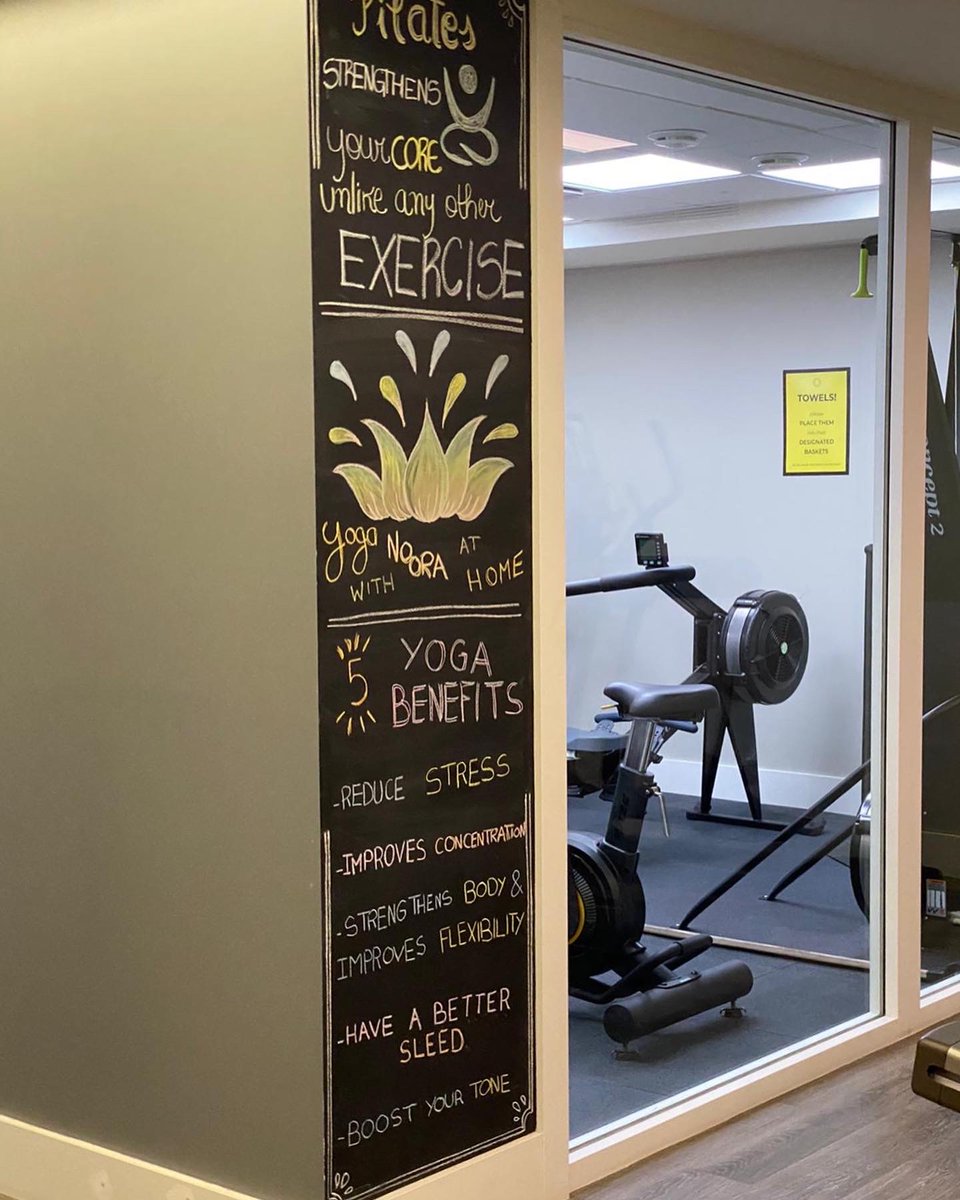 Pilates
STRENGTHENS
your CORE
unlike any other
EXERCISE
Yoga NOORA AT
WITH HOME
5 YOGA
BENEFITS
-REDUCE STRESS
-IMPROVES CONCENTRATION
-STRENGTHENS BODY &
IMPROVES FLEXIBILITY
-HAVE A BETTER
SLEED
-BOOST YOUR TONE
TOWELS!
PLACE THEM
DESIGNATED
BASKETS
oncept 2